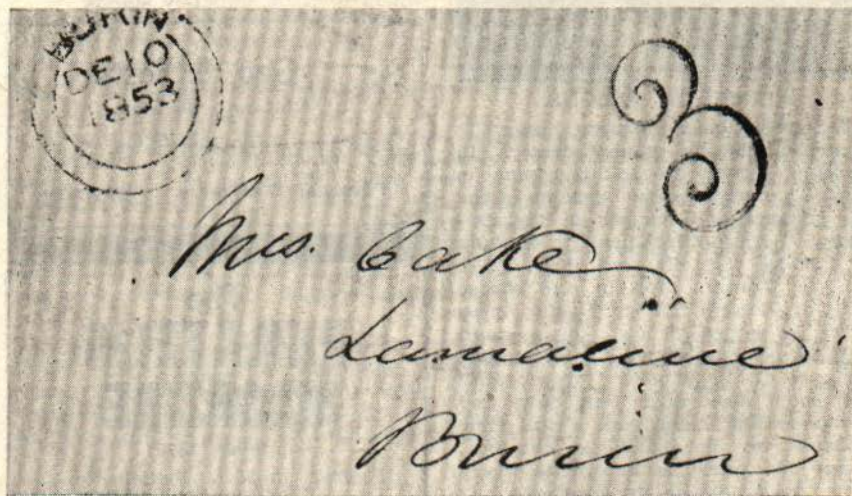 BURIN
DE 10
1853
3
Mrs. Cake
Lamaline
Burin